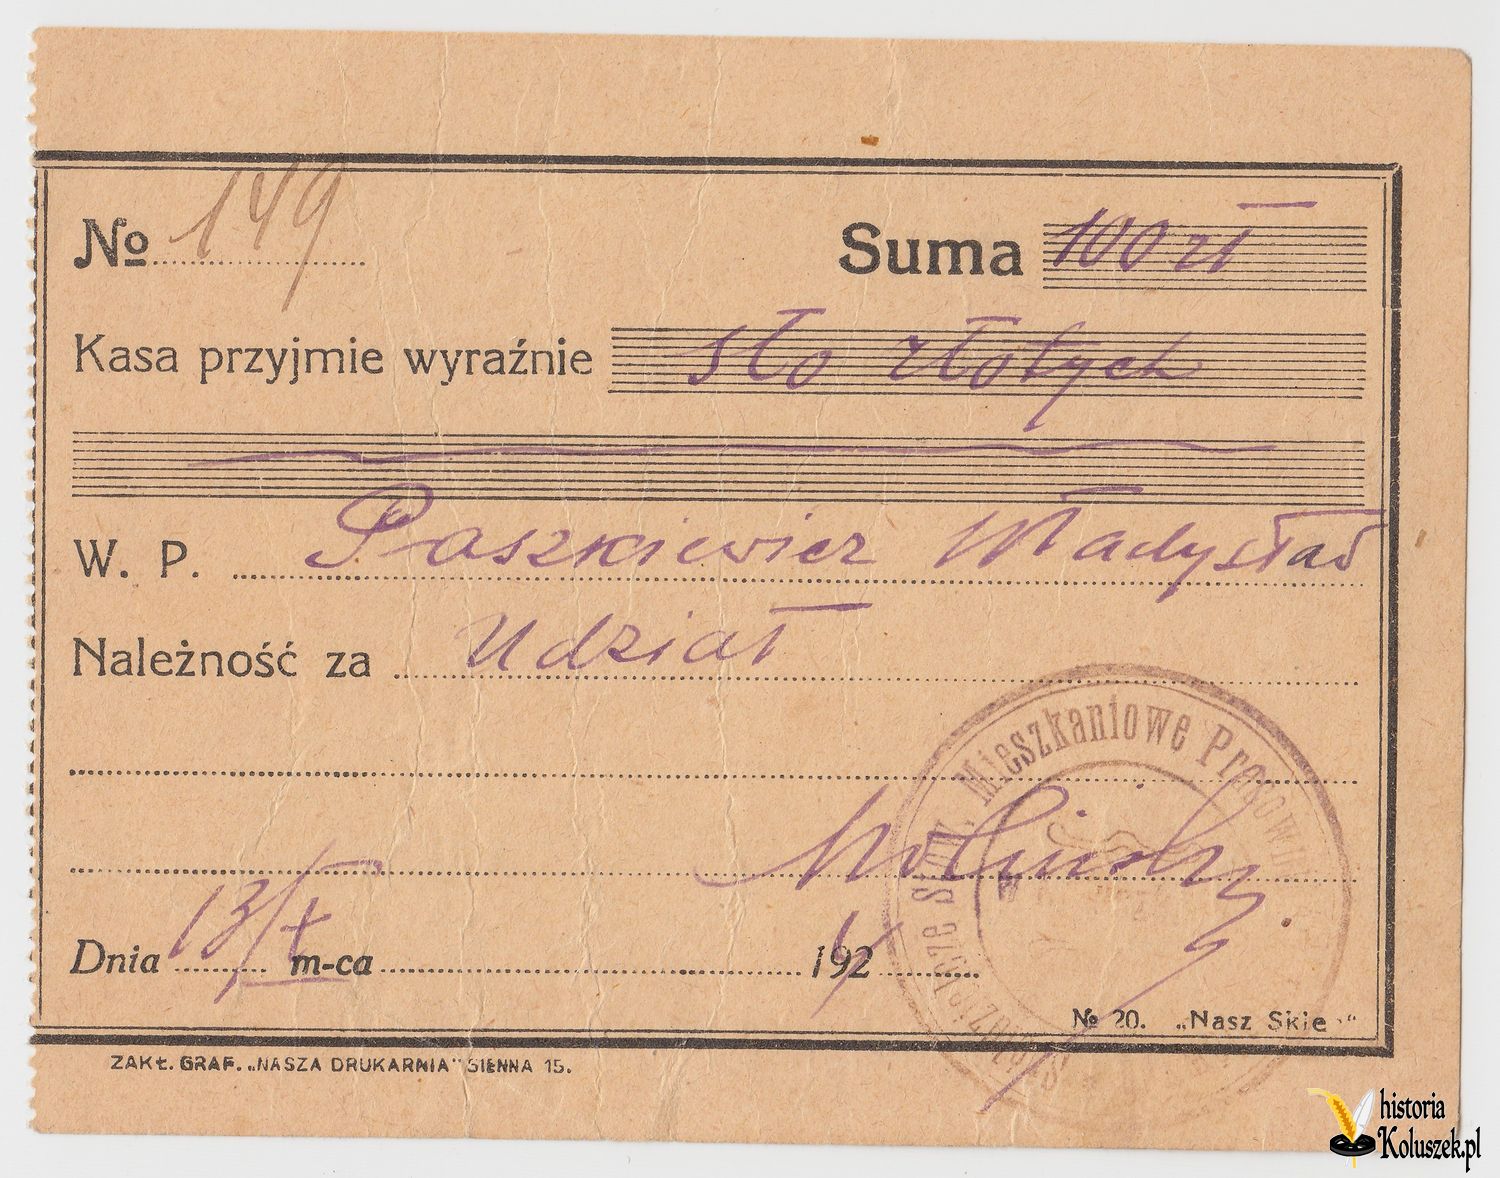 № 149 Suma 100 zł
Kasa przyjmie wyraźnie sto złotych
W. P. Paszkiewicz Władysław
Należność za Udział
Spółdzielcze Stow. Mieszkaniowe Pracown
Dnia 13/X m-ca 192
№ 20. „Nasz Skle "
ZAKŁ. GRAF. „NASZA DRUKARNIA" SIENNA 15.
historia
Koluszek.pl